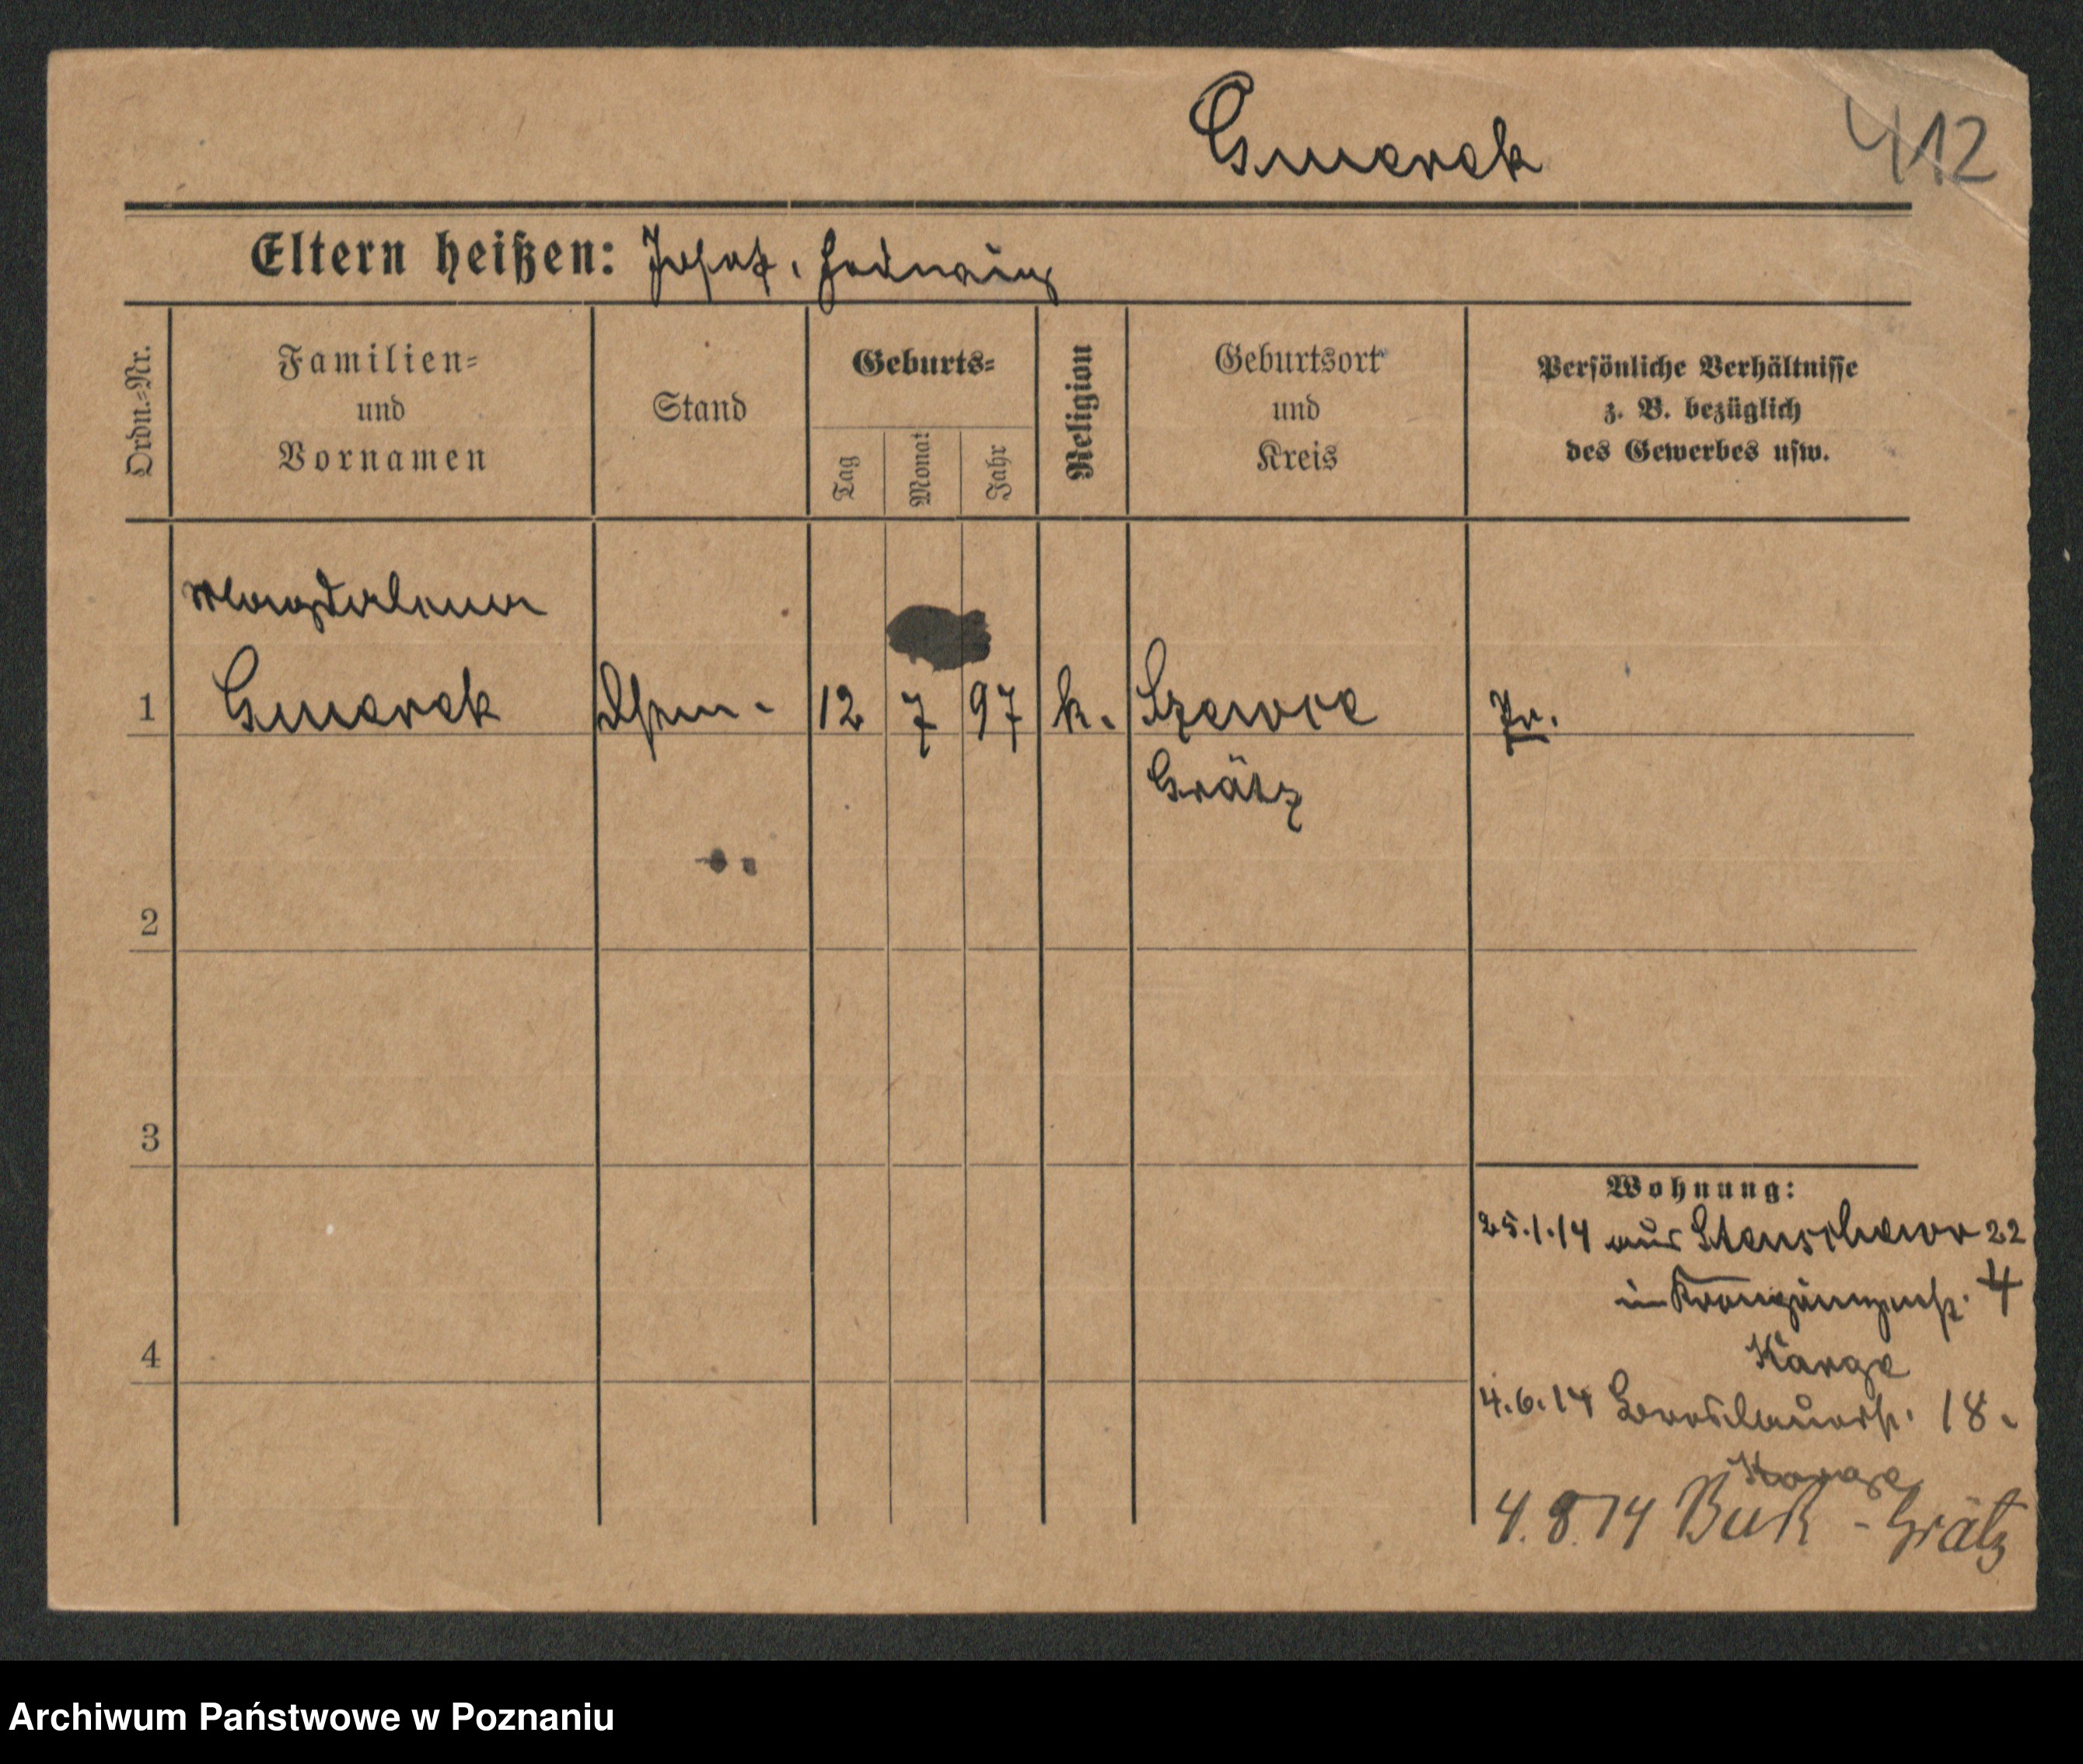 Gmerek
412
Eltern heißen: Josef, Hedwig
Ordn.-Nr.
Familien-
und
Vornamen
Stand
Geburts-
Tag
Monat
Jahr
Religion
Geburtsort
und
Kreis
Persönliche Verhältnisse
z. B. bezüglich
des Gewerbes usw.
Magdalena
1 Gmerek 12 7 97 k. Szewce Pr.
Grätz
2
3
Wohnung:
25.1.14 aus Stenschewo 22
in Kronprinzenstr. 4
4 Karge
4.6.14 Breslauerstr. 18.
Karge
4.8.14 Buk - Grätz
Archiwum Państwowe w Poznaniu